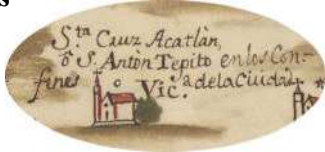 Sta Cauz Acatlàn,
ô S. Anton Tepito en los Con-
fines o Vic.a de la Ciudad.